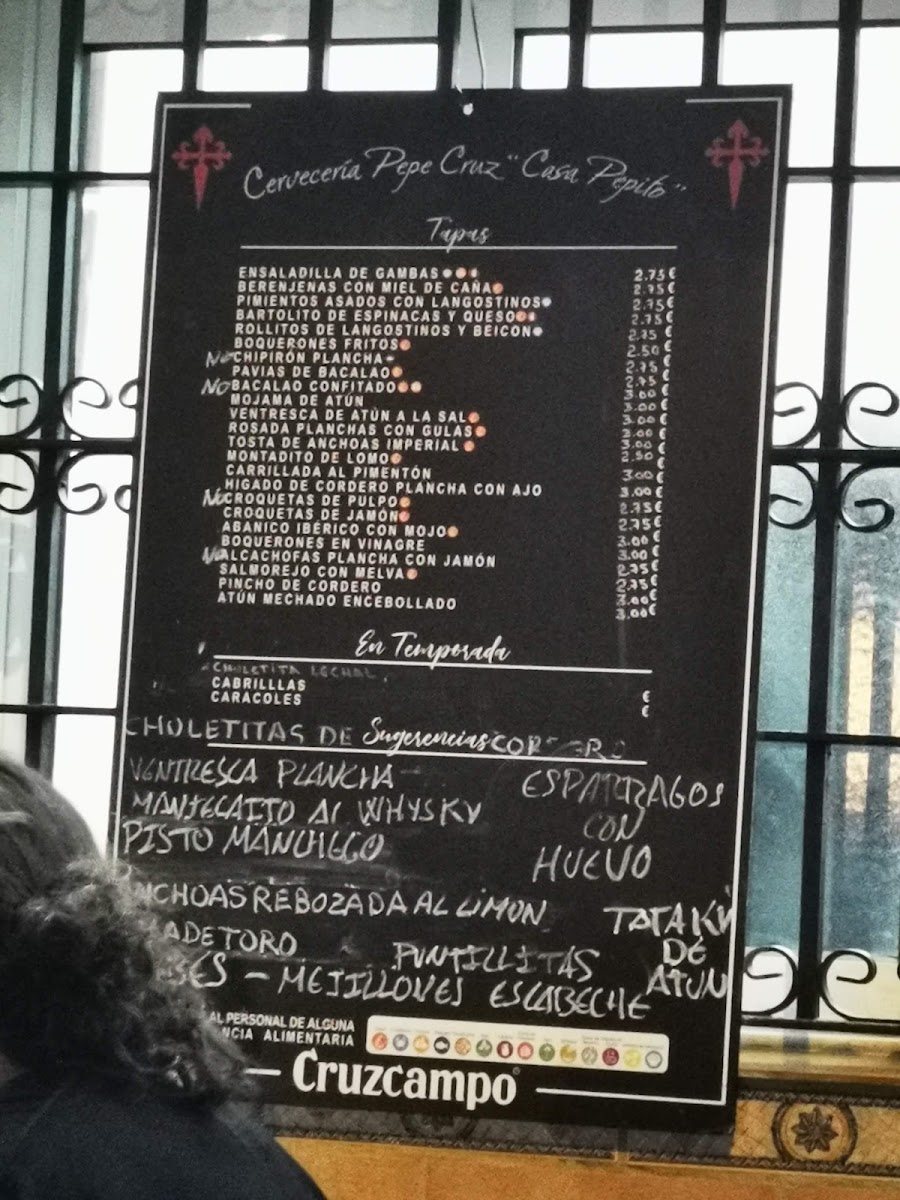 Cervecería Pepe Cruz "Casa Pepito"
Tapas
ENSALADILLA DE GAMBAS 2.75€
BERENJENAS CON MIEL DE CAÑA 2.75€
PIMIENTOS ASADOS CON LANGOSTINOS 2.75€
BARTOLITO DE ESPINACAS Y QUESO 2.75€
ROLLITOS DE LANGOSTINOS Y BEICON 2.75€
BOQUERONES FRITOS 2.50€
No CHIPIRÓN PLANCHA 2.75€
PAVIAS DE BACALAO 2.75€
NO BACALAO CONFITADO 3.00€
MOJAMA DE ATÚN 3.00€
VENTRESCA DE ATÚN A LA SAL 3.00€
ROSADA PLANCHAS CON GULAS 3.00€
TOSTA DE ANCHOAS IMPERIAL 3.00€
MONTADITO DE LOMO 2.50€
CARRILLADA AL PIMENTÓN 3.00€
HIGADO DE CORDERO PLANCHA CON AJO 3.00€
No CROQUETAS DE PULPO 2.75€
CROQUETAS DE JAMÓN 2.75€
ABANICO IBÉRICO CON MOJO 3.00€
BOQUERONES EN VINAGRE 3.00€
No ALCACHOFAS PLANCHA CON JAMÓN 2.75€
SALMOREJO CON MELVA 2.75€
PINCHO DE CORDERO 3.00€
ATÚN MECHADO ENCEBOLLADO 3.00€
En Temporada
CHULETITA LECHAL
CABRILLLAS €
CARACOLES €
CHULETITAS DE CORDERO
Sugerencias
VENTRESCA PLANCHA
MANTECAITO AL WHYSKY
PISTO MANCHEGO
ESPARRAGOS
CON
HUEVO
NCHOAS REBOZADA AL LIMON
TATAKY
DE
ATUN
ADETORO
PUNTILLITAS
ES - MEJILLONES ESCABECHE
AL PERSONAL DE ALGUNA
NCIA ALIMENTARIA
Cruzcampo